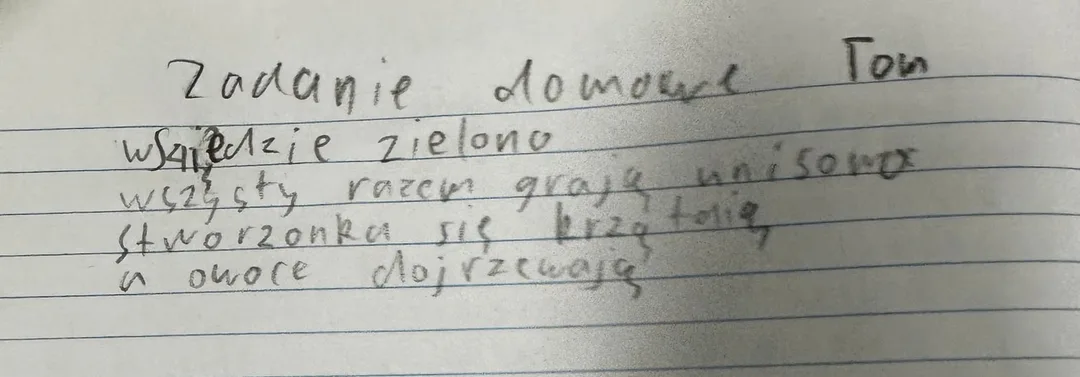 Zadanie domowe Tom
zielono
wszysty razem grają unisono
stworzonka się krzątają
a owoce dojrzewają